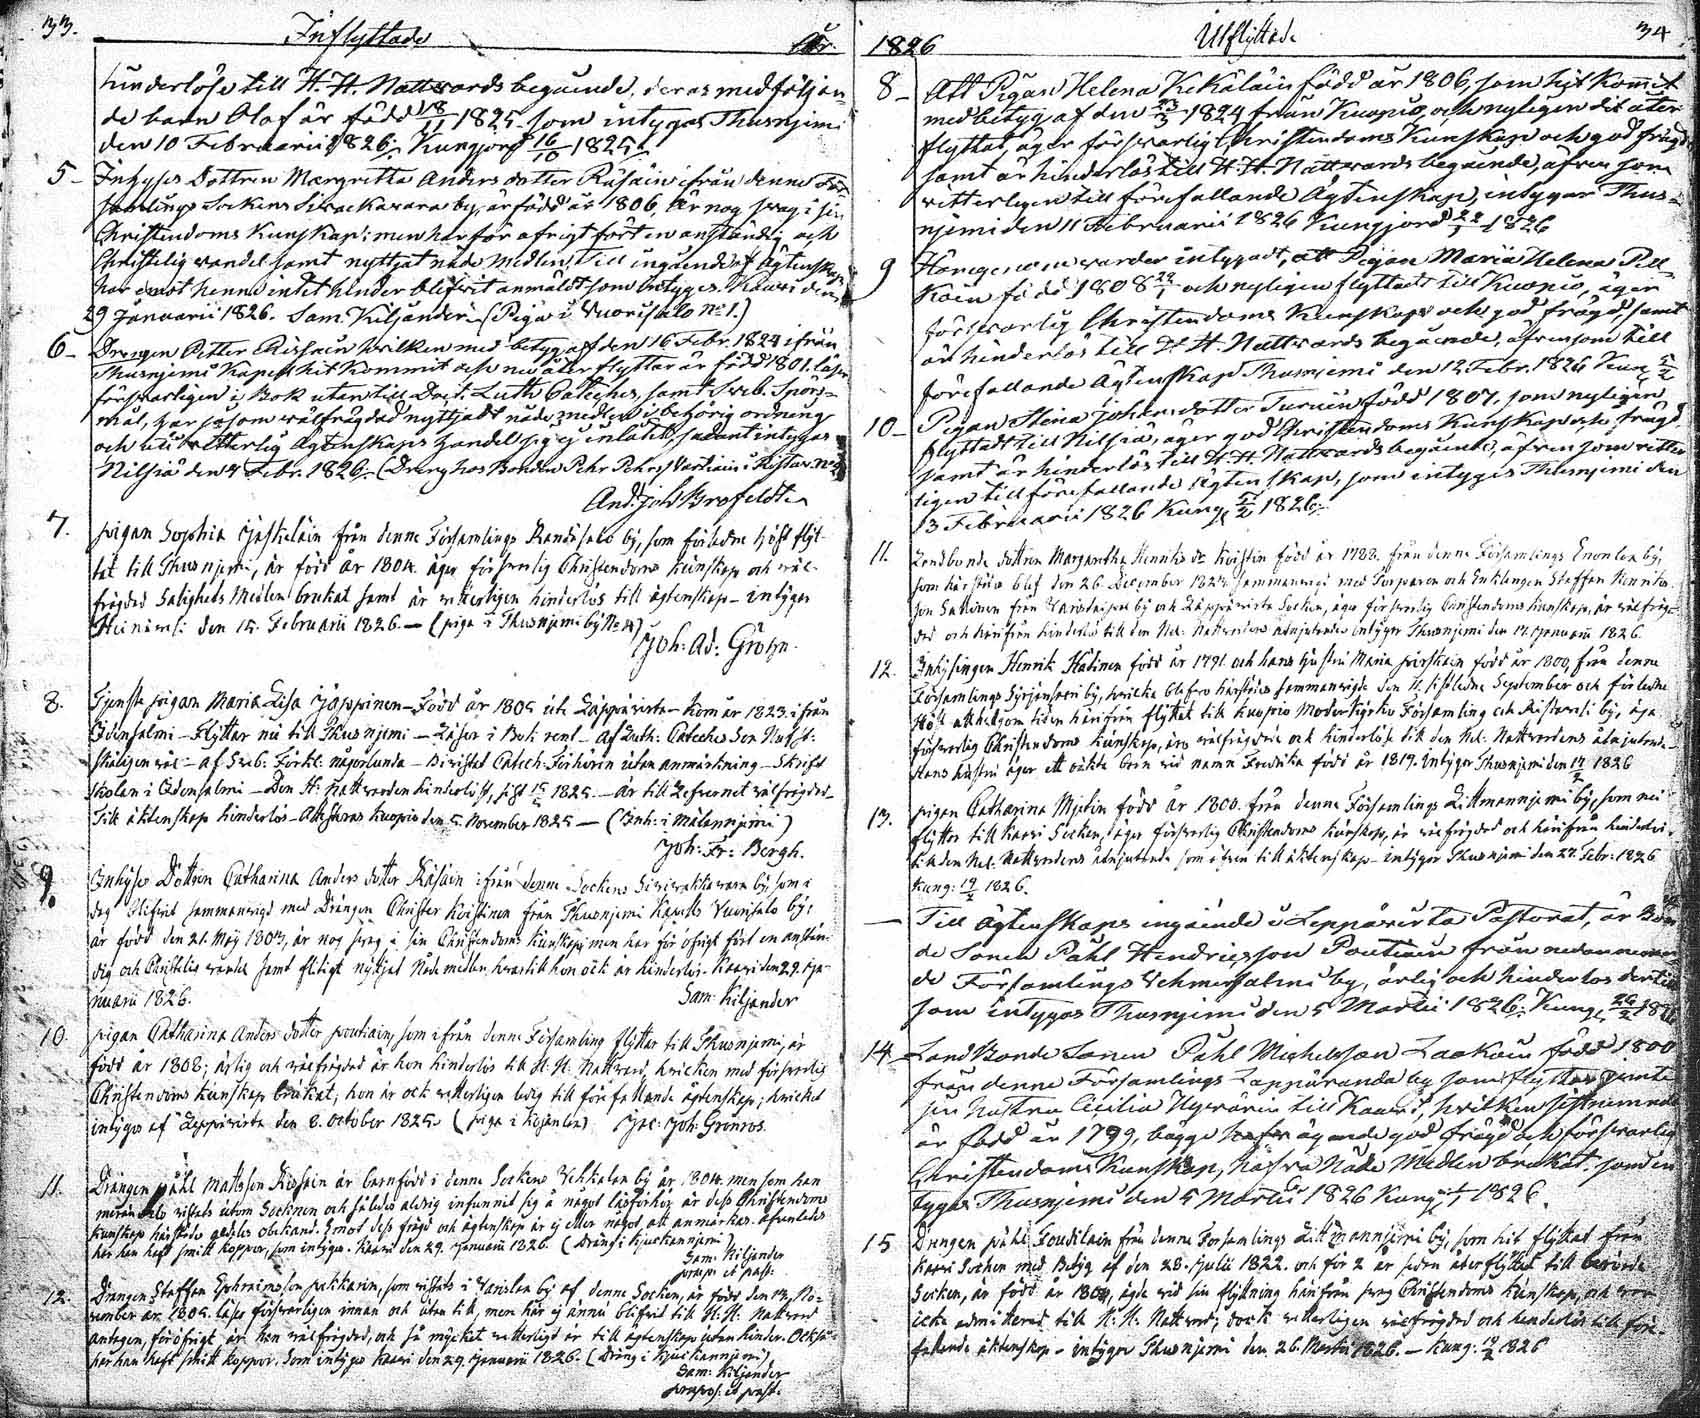 33.
Inflyttade
År
hinderlöse till H. H. Nattvards begående, deras medföljan-
de barn Olof är född 18/11 1825 som intygas Thusnjemi
den 10 Februarii 1826. Kungjord 16/10 1825
5 Inhyses Dottren Margretha Andersdotter Räsäin ifrån denne För-
samlings Sockens by, är född år 1806, är nog svag i sin
Christendoms Kunskap; men har för öfrigt fört en anständig och
Christelig vandel samt nyttjat nåde medlen, Till ingående af Ägtenskap
har emot henne intet hinder blifvit anmäldt som intygas. Kaavi den
29 Januarii 1826. Sam. Kiljander (Piga i Vuorisalo No 1.)
6 Drengen Petter Rissain hvilken med betyg af den 16 Febr. 1824 ifrån
Thusnjemi Kapell hit kommit och nu åter flyttar är född 1801. läser
försvarligen i Bok utantill Doct. Luth. Cateches, samt Sveb. Spörs-
mål, har såsom välfrägdad nyttjadt nådemedlen i behörig ordning
och uti ätterlig Ägtenskaps handel sig ej inlåtit, sådant intygas
Nilsiä den 4 Febr. 1826. (Dräng hos Bonden Pehr Pehrss Vartiain i
And. Joh. Brofeldt
7. Pigan Sophia Jäskeläin från denne Församlings Randasalo by, som förledne höst flyt-
tat till Thusnjemi, är född år 1804. äger försvarlig Christendoms kunskap och väl-
frägdad Salighets Medlen brukat samt är vitterligen hinderlös till ägtenskap - intygar
Heinävesi den 15. Februarii 1826. — (piga i Thusnjemi by No 4)
Joh: Ad: Gröhn.
8. Tjenste pigan Maria Lisa Jäppinen - Född år 1805 uti Läppävirta - Kom år 1823. ifrån
Idensalmi - Flyttar nu till Thusnjemi - Läser i Bok rent - af Luth: Cateches Son
skäligen väl - af Sveb: Förkl: någorlunda - Bivistad Catech: Förhören utan anmärkning - Skrift
skolan i Idensalmi - Den H: Nattvarden hinderlöst, sist 15/5 1825. - är till Lefvernet välfrägdad -
Till äktenskap hinderlös - Attesteras Kuopio den 5. November 1825 — (Inh: i Mälannjemi)
Joh: Fr: Bergh.
9. Inhyses Dottren Catharina Anders dotter Räsäin ifrån denne Sockens by, som i
dag blifvit sammanvigd med Drängen Christer Koistinen från Thusnjemi Kapells Vuorisalo by;
är född den 21. Maij 1804, är nog svag i sin Christendoms kunskap; men har för öfrigt fört en anstän-
dig och Christelig vandel samt flitigt nyttjat Nåde medlen, hvartill hon ock är hinderlös. Kaavi den 29. Ja-
nuarii 1826.
Sam: Kiljander
10. Pigan Catharina Anders dotter Poutiain, som ifrån denne Församling flyttar till Thusnjemi, är
född år 1808; ärlig och välfrägdad är hon hinderlös till H. H. Nattvard, hvilken med försvarlig
Christendoms kunskap brukat; hon är ock vitterligen ledig till förefallande ägtenskap; hvilket
intygas af Läppävirta den 8. October 1825. (piga i Kojanlax) Jac: Joh: Grönros.
11. Drängen Påhl Mattsson Rissain är barnfödd i denne Sockens Vehkalax by år 1804. men som han
vistats utom Socknen och således aldrig infunnit sig å något läsförhör är dess Christendoms
kunskap härstädes aldeles obekand. Emot dess frägd och ägtenskap är ej eller något att anmärkas. äfvenledes
har han haft smitt koppor, som intygas. Kaavi den 29. Januarii 1826. (dräng i Hjuckannjemi)
Sam: Kiljander
præp: et past:
12. Drängen Staffan Ephraimsson Pakkarin, som vistats i Vanslax by af denne Socken, är född den 14. No-
vember år 1805. läser försvarligen innan och utan till, men har ej ännu blifvit till H: H: Nattvard
antagen, för öfrigt är han välfrägdad, och så mycket vitterligt är till ägtenskap utan hinder. Också
har han haft smitt koppor. Som intygas Kaavi den 29. Januarii 1826. (Dräng i Hjuckannjemi)
Sam: Kiljander
præpos: et past:
1826
Utflyttade
34
8 Att Pigan Helena Kekäläin född år 1806, som hit kommit
med betyg af den 23/5 1824 från Kuopio, och nyligen dit åter
flyttat, äger försvarlig Christendoms Kunskap och god frägd
samt är hinderlös till H. H. Nattvards begående, äfven som
vitterligen till förefallande Ägtenskap, intygar Thus-
njemi den 11 Februarii 1826 Kungjord 22/1 1826
9 Härigenom varder intygadt, att Pigan Maria Helena Pell-
käin född 1808 24/1 och nyligen flyttadt till Kuopio, äger
försvarlig Christendoms Kunskap och god frägd, samt
är hinderlös till H. H. Nattvards begående, äfvensom till
förefallande Ägtenskap Thusnjemi den 12 Febr. 1826 Kung 5/2
10 Pigan Stina Johansdotter Turuin född 1807, som nyligen
flyttadt till Nilsiä, äger god Christendoms Kunskap och frägd
samt är hinderlös till H. H. Nattvards begående, äfven som vitter-
ligen till förefallande Ägtenskap, som intygas Thusnjemi den
13 Februarii 1826 Kung. 5/2 1826
11. Landbonde dottren Margaretha Henriks dr Koistin född år 1788. från denne Församlings Enonlax by,
som härstädes blef den 26. December 1824 sammanvigd med Torparen och Enklingen Staffan Henriks-
son Sallinen från by och Läppävirta Socken, äger försvarlig Christendoms kunskap, är välfräg-
dad och härifrån hinderlös till den Hel: Nattvardens adnjutande intygar Thusnjemi den 17. Januarii 1826.
12. Inhysingen Henrik Hätinen född år 1791. och hans Hustru Maria född år 1800, från denne
Församlings by, hvilka blefvo härstädes sammanvigde den 11. sistledne September och förledne
Höst allhelgom tiden härifrån flyttat till Kuopio Moder Kyrko Församling och Ristavesi by, äga
försvarlig Christendoms kunskap, äro välfrägdade och hinderlöse till den Hel: Nattvardens åtnjutande.
Hans hustru äger ett oäkta barn vid namn Fredrika född år 1819. Intygar Thusnjemi den 14/2 1826
13. Pigan Catharina Mjelin född år 1800. från denne Församlings Littmannjemi by, som nu
flyttar till Kaavi Socken, äger försvarlig Christendoms kunskap, är välfrägdad och härifrån hinderlös
till den Hel: Nattvardens adnjutande som äfven till äktenskap - intygar Thusnjemi den 27. Febr: 1826
Kung: 19/2 1826.
— Till Ägtenskaps ingående i Leppävirta Pastorat, är Bon-
de Sonen Påhl Hendricsson Poutiain från nedannämn-
de Församlings Vehmersalmi by, ärlig och hinderlös dertill
som intygas Thusnjemi den 5 Martii 1826. Kung. 26/2 1826
14 LandBonde Sonen Påhl Michelsson Laakoin född 1800
från denne Församlings Lappäranda by som flyttar jemte
sin Hustru Cecilia Hyvärin till Kaavi, hvilken sistnämnde
är född år 1799, bägge ägande god frägd och försvarlig
Christendoms Kunskap, hafva Nåde Medlen brukat, som in
tygas Thusnjemi den 5 Martii 1826 Kung. 1826.
15 Drengen Påhl Toudilain från denne Församlings Littmannjemi by, som hit flyttat från
Kaavi Socken med Betyg af den 28. Julii 1822. och för 2 år sedan återflyttat till berörde
Socken, är född år 1804, ägde vid sin flyttning härifrån svag Christendoms kunskap, och var
icke admitterad till H. H. Nattvard; dock vitterligen välfrägdad och hinderlös till före-
fallande äktenskap - intygar Thusnjemi den 26. Martii 1826. - Kung: 19/2 1826